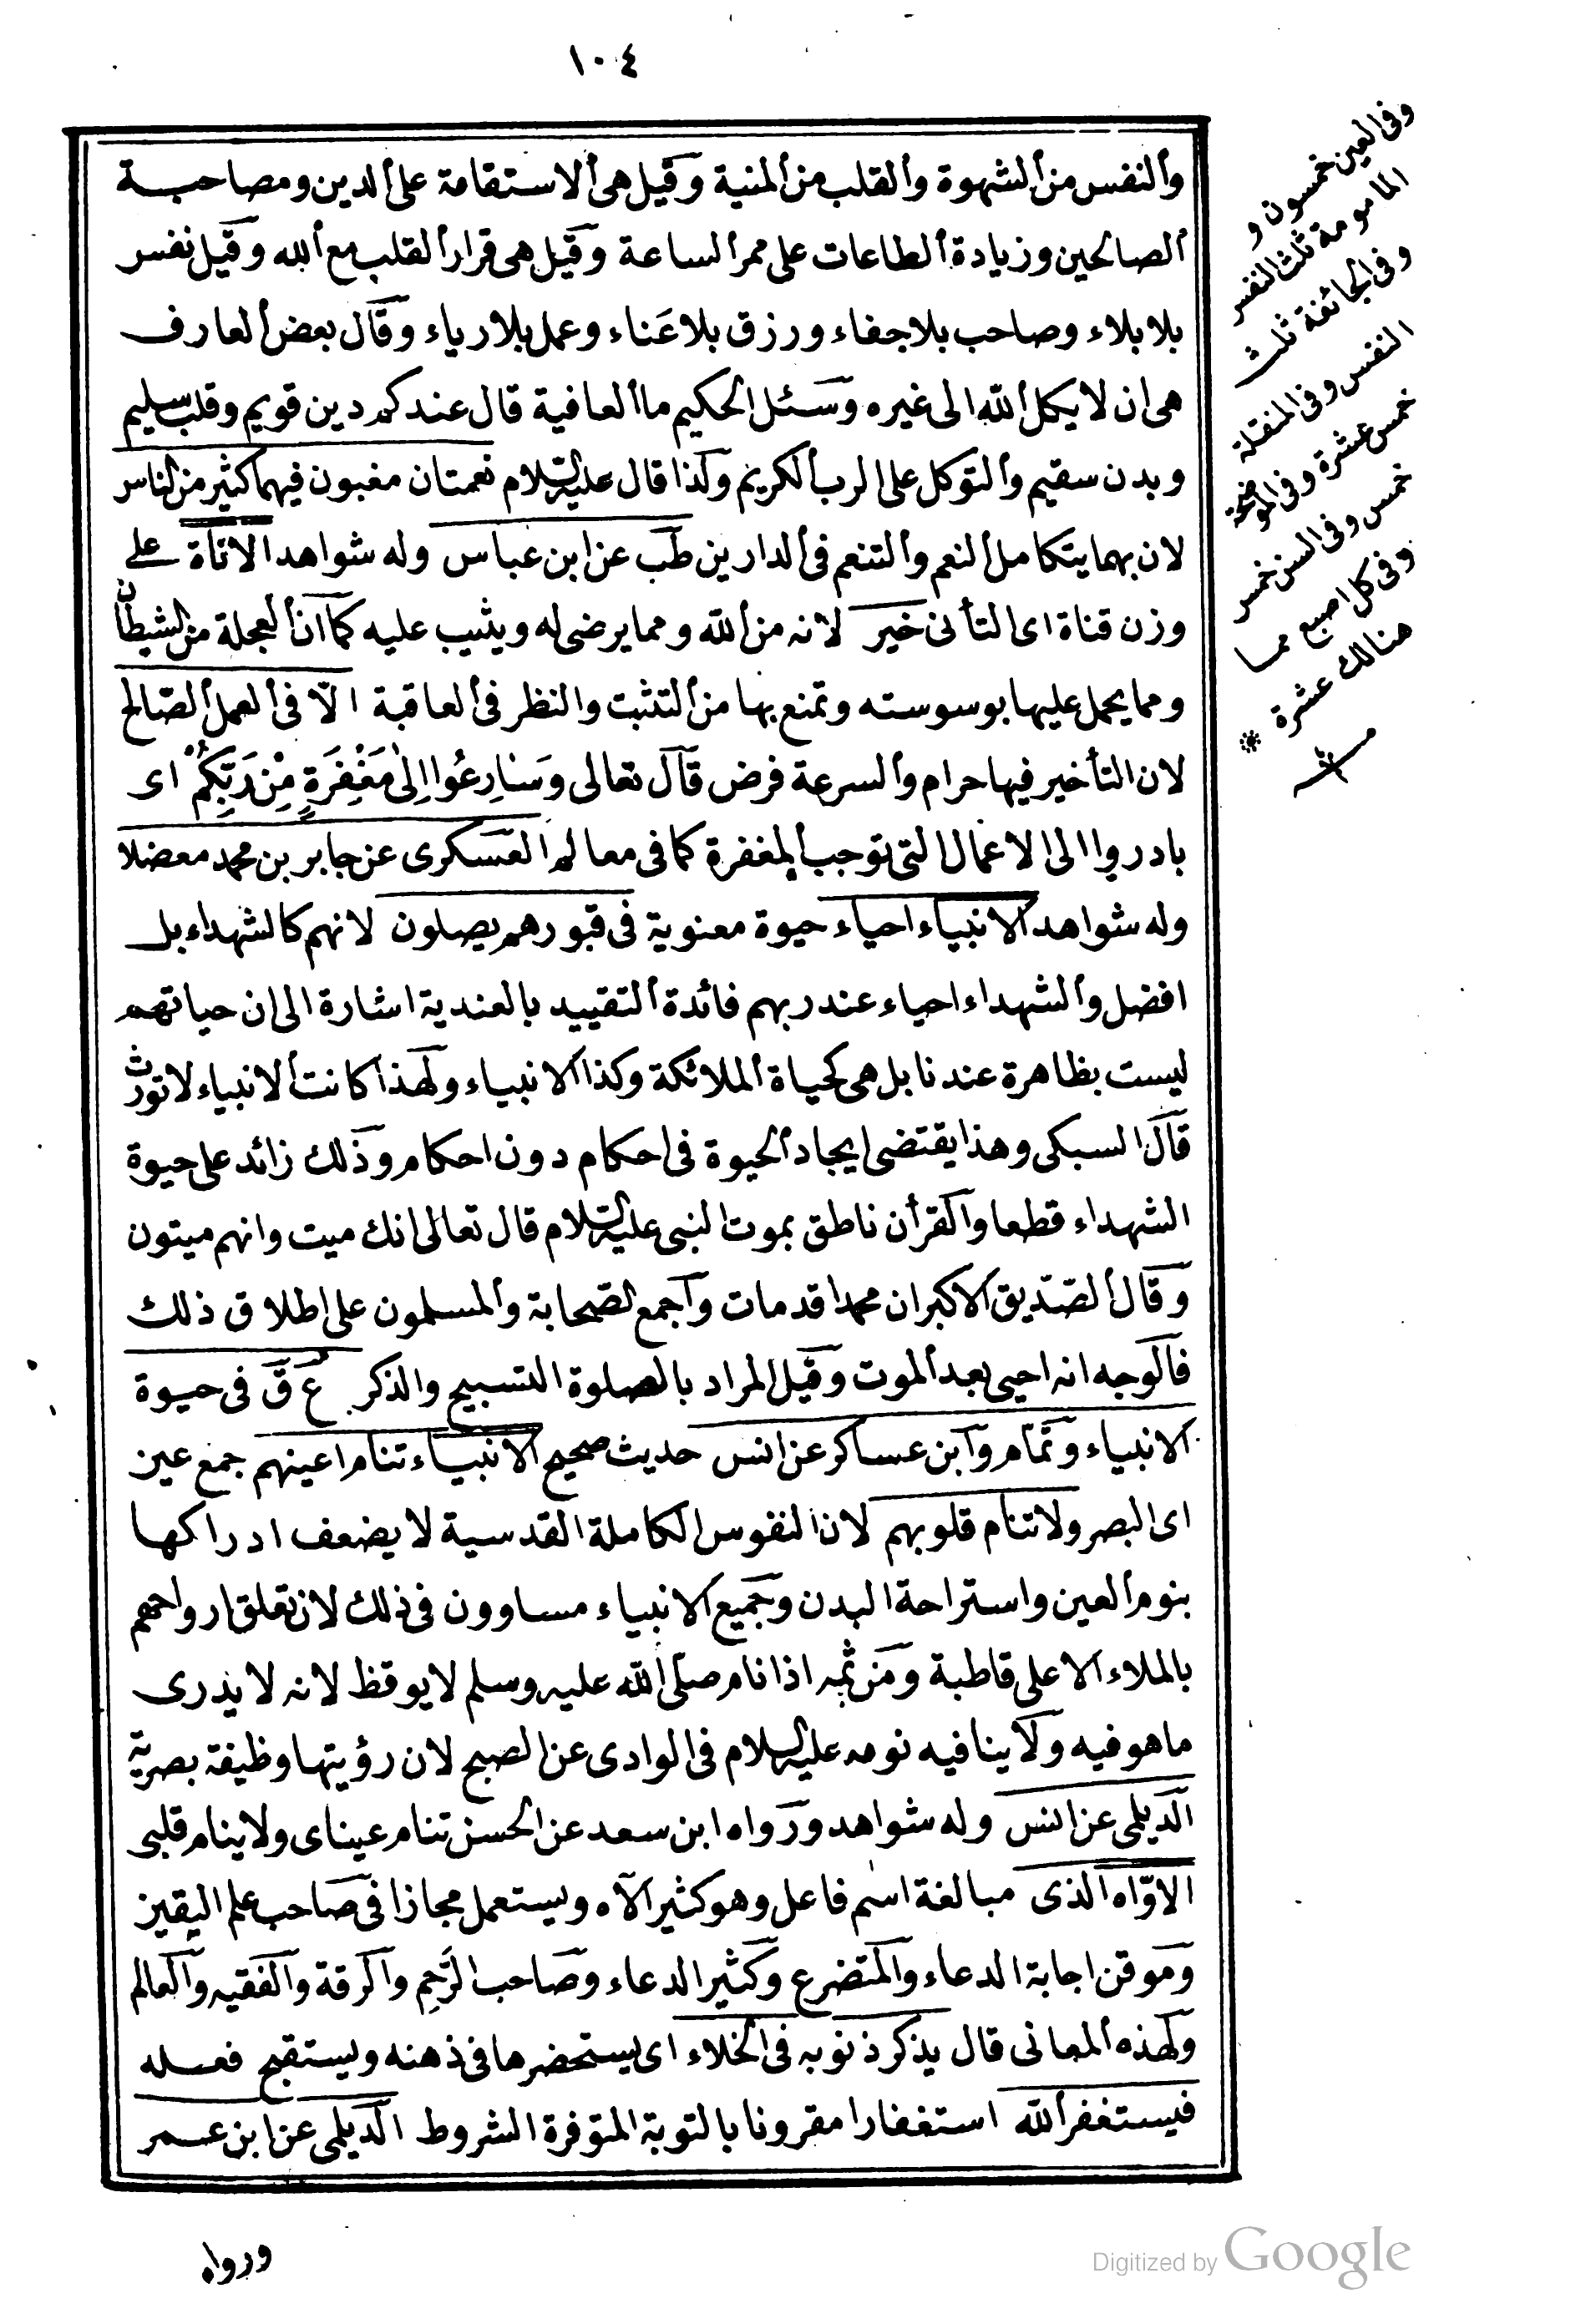 ١٠٤
والنفس من الشهوة والقلب من المنية وقيل هى الاستقامة على الدين ومصاحبة
الصالحين وزيادة الطاعات على ممر الساعة وقيل هى قرار القلب مع الله وقيل نفس
بلا بلاء وصاحب بلا جفاء ورزق بلا عَناء وعمل بلا رياء وقال بعض العارف
هى ان لا يكل الله الى غيره وسئل الحكيم ما العافية قال عندكم دين قويم وقلب سليم
وبدن سقيم والتوكل على الرب الكريم ولذا قال عليه السلام نعمتان مغبون فيهما كثير من الناس
لان بهما يتكامل النعم والتنعم فى الدارين طب عن ابن عباس وله شواهد الاناة على
وزن قناة اى التأنى خير لانه من الله ومما يرضى له ويثيب عليه كما ان العجلة من الشيطان
ومما يحمل عليها بوسوسته وتمنع بها من التثبت والنظر فى العاقبة الّا فى العمل الصّالح
لان التأخير فيها حرام والسرعة فرض قال تعالى وَسَارِعُوا اِلٰى مَغْفِرَةٍ مِنْ رَبِّكُمْ اى
بادروا الى الاعمال التى توجب المغفرة كما فى معالم العسكرى عن جابر بن محمد معضلا
وله شواهد الانبياء احياء حيوة معنوية فى قبورهم يصلون لانهم كالشهداء بل
افضل والشهداء احياء عند ربهم فائدة التقييد بالعندية اشارة الى ان حياتهم
ليست بظاهرة عندنا بل هى كحياة الملائكة وكذا الانبياء ولهذا كانت الانبياء لا تورث
قال السبكى وهذا يقتضى ايجاد الحيوة فى احكام دون احكام وذلك زائد على حيوة
الشهداء قطعا والقرأن ناطق بموت النبى عليه السلام قال تعالى انك ميت وانهم ميتون
وقال الصّدّيق الاكبر ان محمدا قد مات واجمع الصّحابة والمسلمون على اطلاق ذلك
فالوجه انه احيى بعد الموت وقيل المراد بالصلوة التسبيح والذكر ع ق فى حيوة
الانبياء وتمّام وابن عساكر عن انس حديث صحيح الانبياء تنام اعينهم جمع عين
اى البصر ولا تنام قلوبهم لان النفوس الكاملة القدسية لا يضعف ادراكها
بنوم العين واستراحة البدن وجميع الانبياء مساوون فى ذلك لان تعلق ارواحهم
بالملاء الاعلى قاطبة ومن ثمه اذا نام صلّى الله عليه وسلم لا يوقظ لانه لا يدرى
ما هو فيه ولا ينافيه نومه عليه السلام فى الوادى عن الصبح لان رؤيتها وظيفة بصرية
الديلمى عن انس وله شواهد ورواه ابن سعد عن الحسن تنام عيناى ولا ينام قلبى
الاوّاه الذى مبالغة اسم فاعل وهو كثير الآه ويستعمل مجازا فى صاحب علم اليقين
وموقن اجابة الدعاء والمتضرع وكثير الدعاء وصاحب الرَّحِم والرقة والفقيه والعالم
ولهذه المعانى قال يذكر ذنوبه فى الخلاء اى يستحضرها فى ذهنه ويستقبح فعله
فيستغفر الله استغفارا مقرونا بالتوبة المتوفرة الشروط الديلمى عن ابن عمر
ورواه
وفى العين خمسون و
المامومة ثلث النفس
وفى الجائفة ثلث
النفس وفى المنقلة
خمس عشرة وفى الموضحة
خمس وفى السن خمس
وفى كل اصبع مما
هنالك عشرة *
Digitized by Google